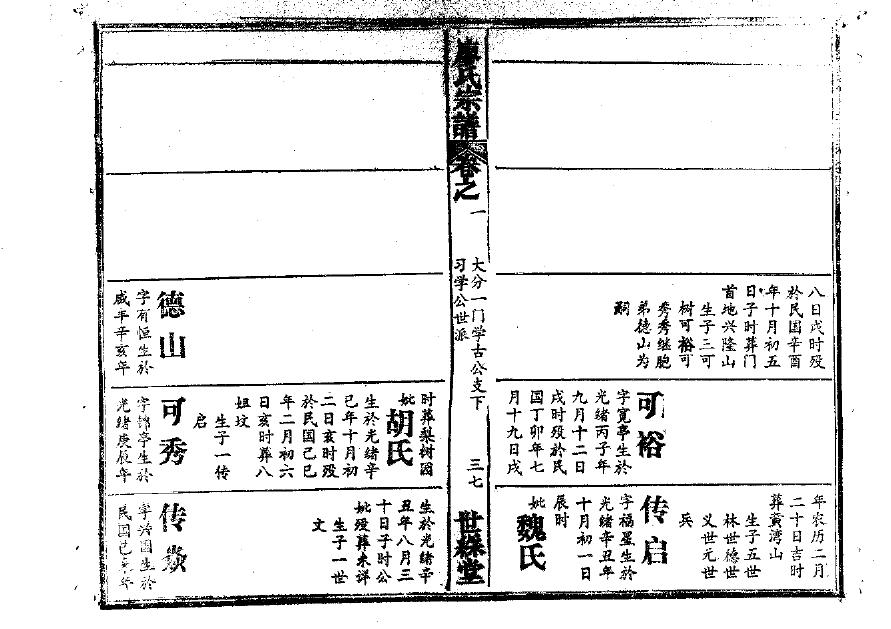 八日戌时殁
於民国辛酉
年十月初五
日子时葬门
首地兴隆山
生子三可
树可裕可
秀秀继胞
弟德山为
嗣
可裕
字宽亭生於
光绪丙子年
九月十二日
戌时殁於民
国丁卯年七
月十九日戌
年农历二月
二十日吉时
葬黄湾山
生子五世
林世德世
义世元世
兵
传启
字福星生於
光绪辛丑年
十月初一日
辰时
妣魏氏
廖氏宗譜
卷之一
大分一门学古公支下
习学公世派
三七
世綵堂
德山
字有恒生於
咸丰辛亥年
时葬梨树园
妣胡氏
生於光绪辛
巳年十月初
二日亥时殁
於民国己巳
年二月初六
日亥时葬八
妞坟
生子一传
启
可秀
字锦亭生於
光绪庚辰年
生於光绪辛
丑年八月三
十日子时公
妣殁葬未详
生子一世
文
传
字兴国生於
民国己亥年